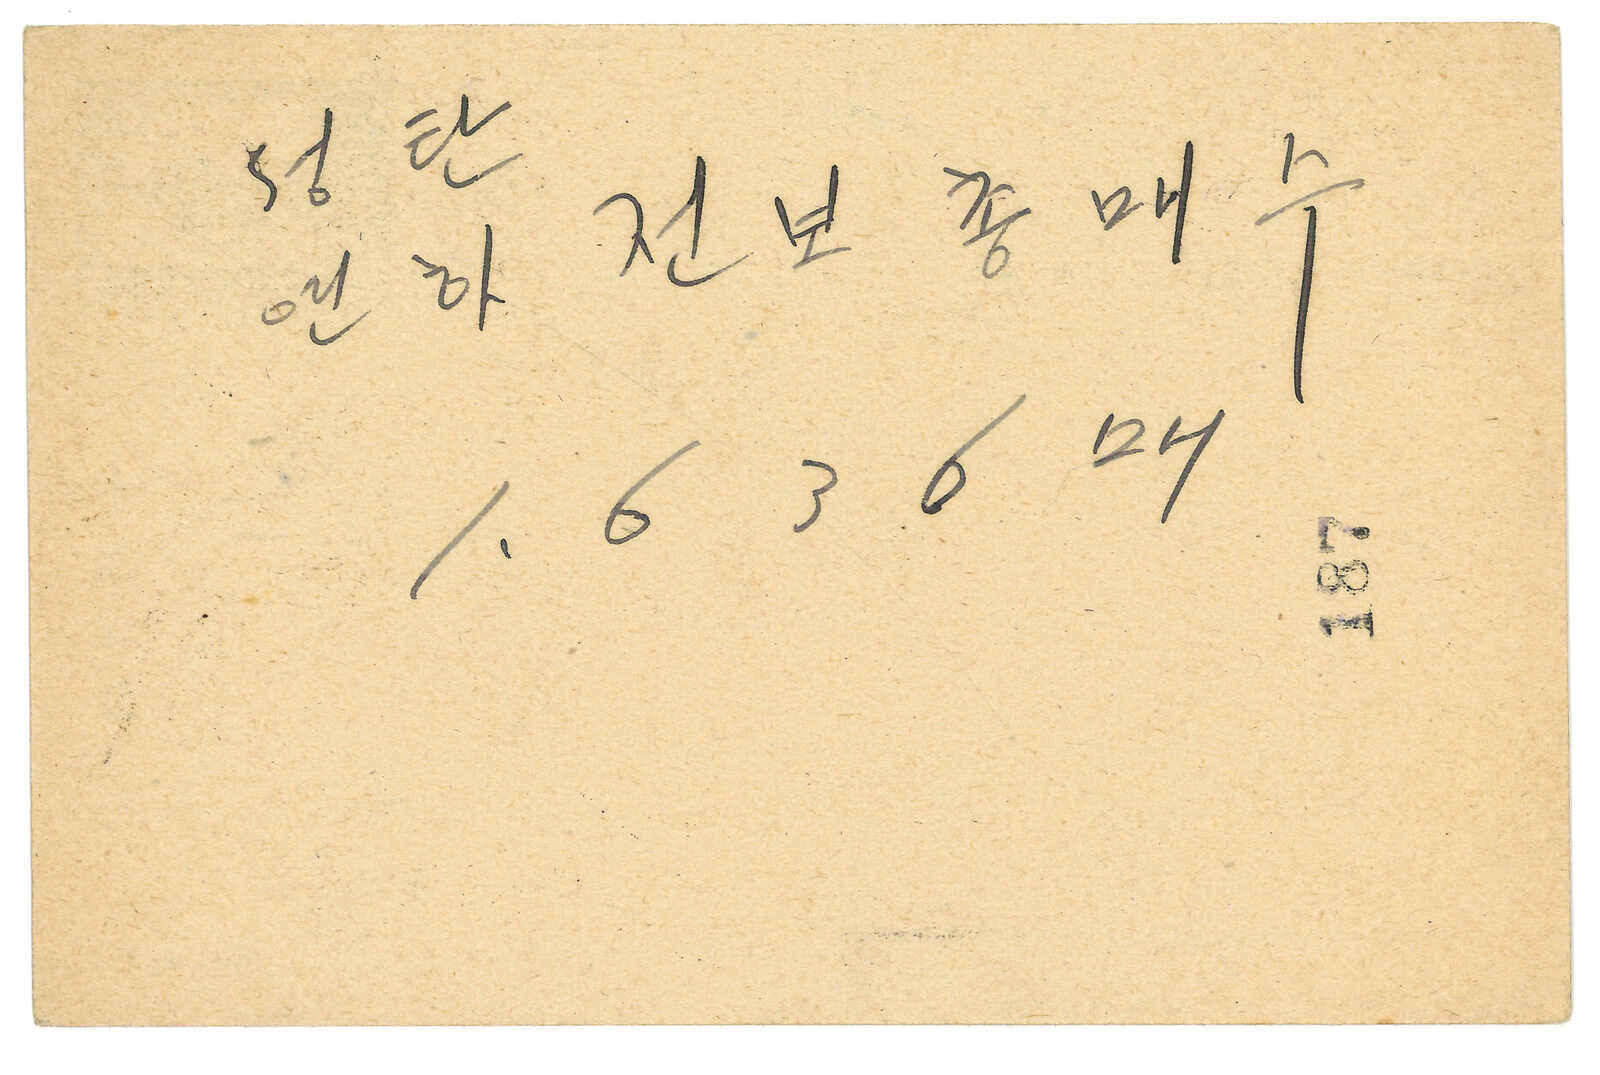 성탄
연하 전보총매수
1.636매
187